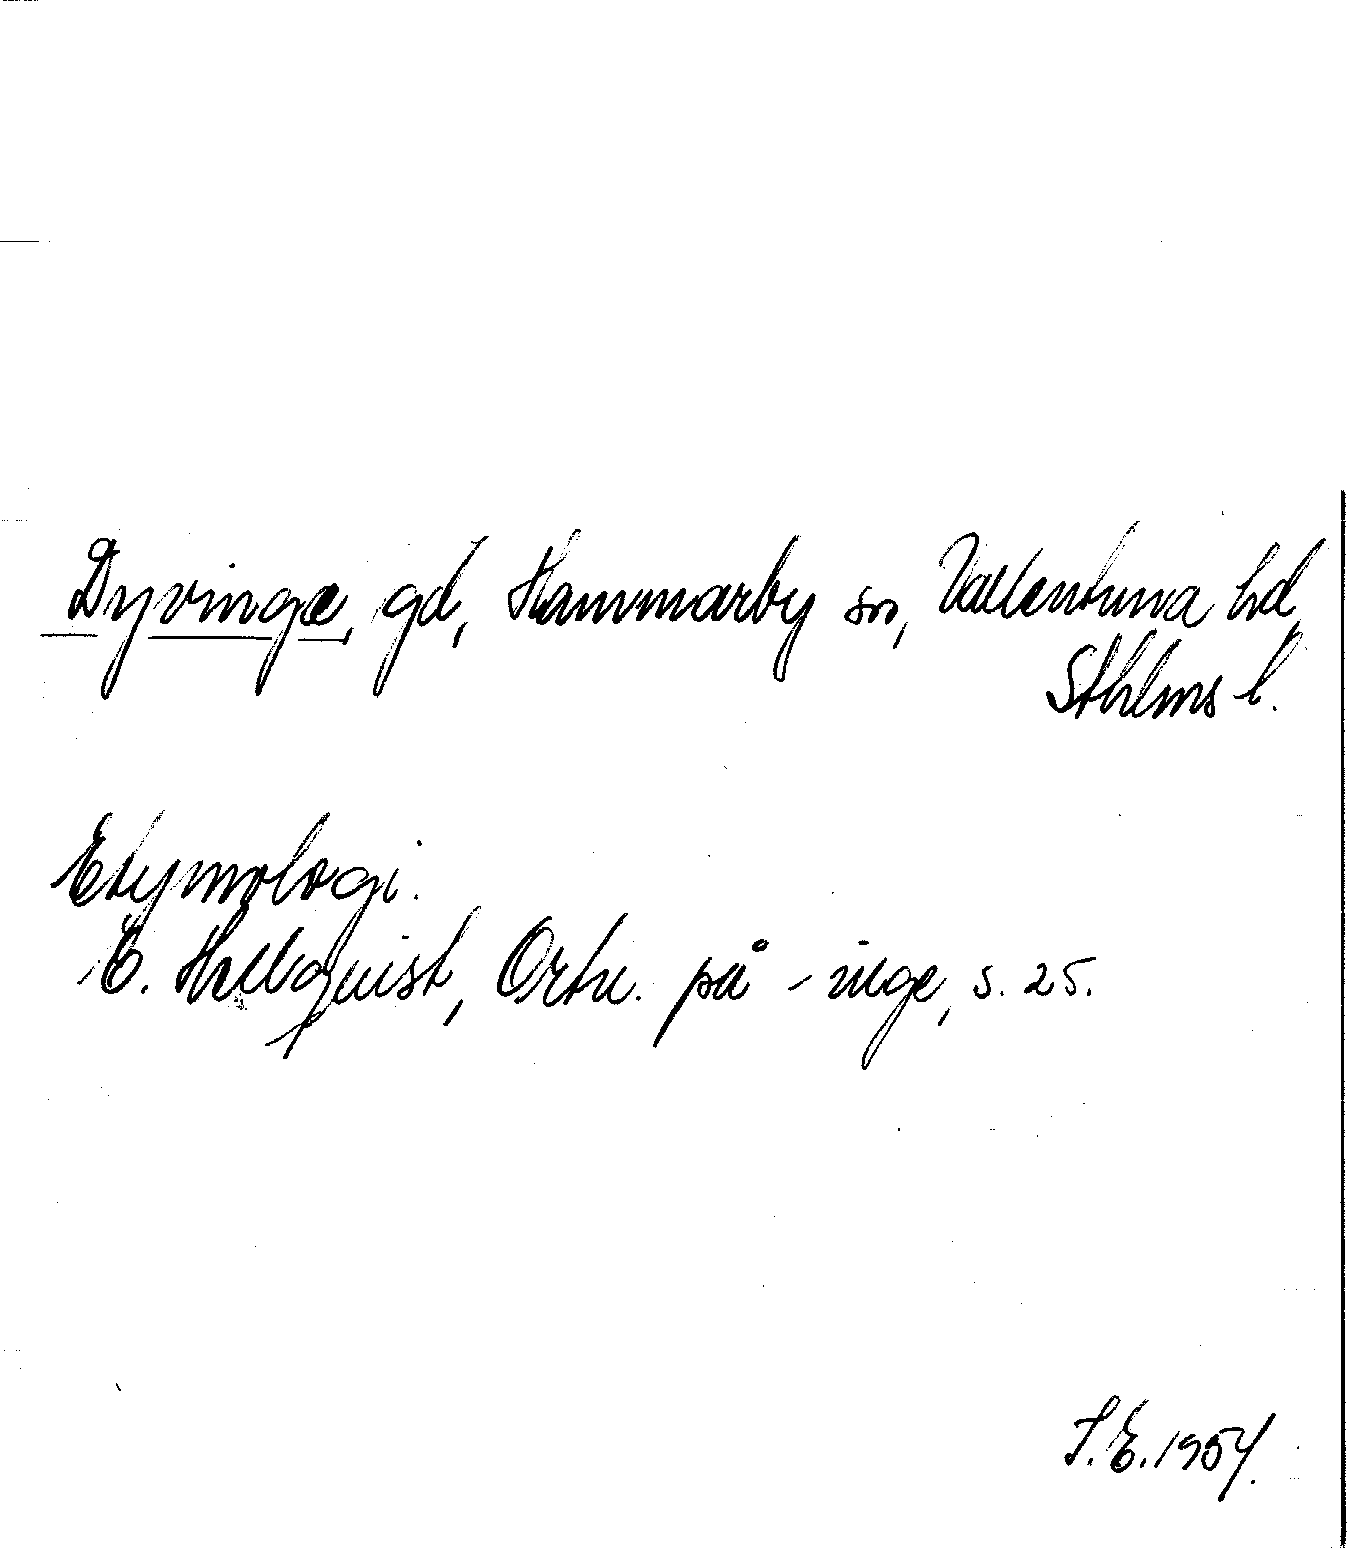 Dyvinge, gd, Hammarby sn, Vallentuna hd,
Sthlms l.
Etymologi.
E. Hellquist, Ortn. på -inge, s. 25.
I. E. 1954.